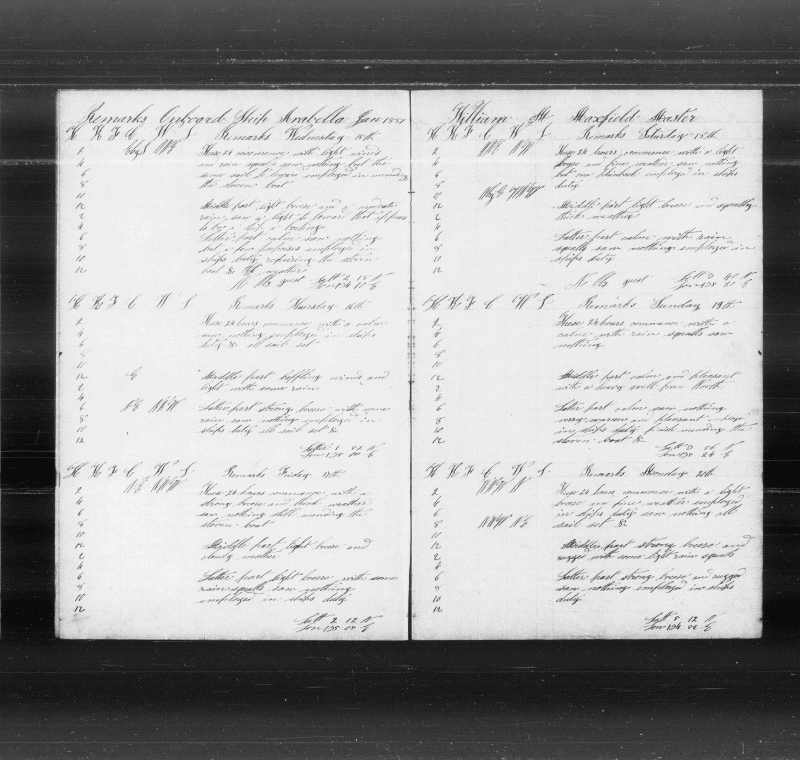 Remarks Onboard Ship Arabella Jan 1851
H K F C W L Remarks Wednesday 15th
2 These 24 commence with light winds
4 an rain squals saw nothing but the
6 same sail to leward employed in mending
8 the stoven boat
10
12 Middle part light breese and a moderate
2 rain saw a light to forward that appears
4 to be a ship a boiling
6 Latter part calm saw nothing
8 but a few porpoises employed in
10 ships duty repairing the stoven
12 boat &c weather
No Obs Lat 2 18 N
Lon 134 10 E
H K F C W L Remarks Thursday 16th
2 These 24 hours commence with a calm
4 saw nothing employed in ships
6 duty &c all sail set
8
10
12 E Middle part baffling winds and
2 light with some rain
4
6 NE NNW Latter part strong breese with some
8 rain saw nothing employed in
10 ships duty all sail set &c
12
Latter 1 52 N
Lon 135 00 E
H K F C W L Remarks Friday 17th
2 NE NNW These 24 hours commence with a
4 strong breese and thick weather
6 saw nothing still mending the
8 stoven boat
10
12 Middle part light breese and
2 cloudy weather
4
6 Latter part light breese with some
8 rain squalls saw nothing
10 employed in ships duty
12
Latt 2 12 N
Lon 135 05 E
William H Maxfield Master
H K F C W L Remarks Saturday 18th
2 NNE NW These 24 hours commence with a light
4 breese an fine weather saw nothing
6 but one finback employed in ships
8 duty
10
12 Middle part light breese and squally
2 thick weather
4
6 Latter part calm with rain
8 squalls saw nothing employed in
10 ships duty
12
No Obs Latt 3 40 N
Lon 135 20 E
H K F C W L Remarks Sunday 19th
2 These 24 hours commence with a
4 calm with rain squalls saw
6 nothing
8
10
12 Middle part calm and pleasant
2 with a heavy swell from North
4
6 Latter part calm saw nothing
8 very warm an pleasant employed
10 in ships duty finish mending the
12 stoven boat &c
Latt 3 56 N
Lon 135 24 E
H K F C W L Remarks Monday 20th
2 NNW N These 24 hours commence with a light
4 breese an fine weather employed
6 in ships duty saw nothing all
8 NNW NE sail set &c
10
12 Middle part strong breese and
2 rugged with some light rain squals
4
6 Latter part strong breese and rugged
8 saw nothing employed in ships
10 duty
12
Latt 5 12 N
Lon 134 52 E